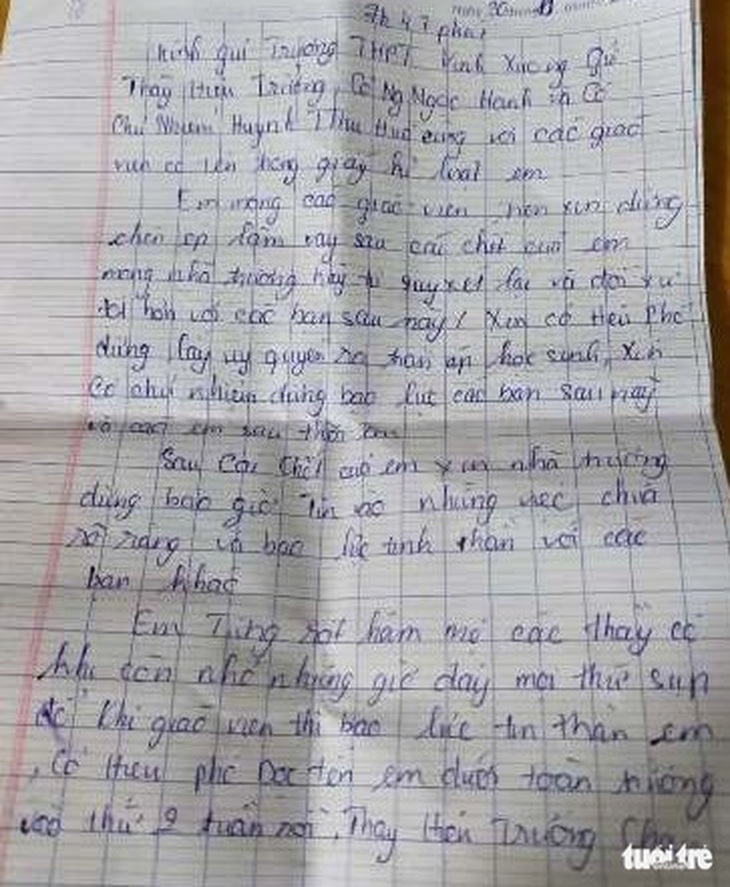 Th 4, 7 phút
Kính gửi Trường THPT Vĩnh Xương Gửi
Thầy Hiệu Trưởng, Cô Ng Ngọc Hạnh Cô
Chủ Nhiệm Huỳnh T Thu Huệ cùng với các giáo
viên có tên trong giấy kỉ luật em
Em mong các giáo viên nên xin đừng
chèn ép lắm vậy sau cái chết của em
mong nhà trường hãy quyết lại và đối xử
tốt hơn với các bạn sau này! Xin cô Hiệu Phó
đừng lấy uy quyền ra đàn áp học sinh, Xin
Cô chủ nhiệm đừng bạo lực các bạn sau này
và các em sau thời em
Sau Cái Chết của em xin nhà trường
đừng bao giờ tin vào những việc chưa
rõ ràng và bạo lực tinh thần với các
bạn khác
Em Từng rất hâm mộ các thầy cô
khi còn nhỏ nhưng giờ đây mọi thứ sụp
đổ Khi giáo viên thì bạo lực tin thần em
, Cô Hiệu phó Đọc tên em dưới toàn trường
vào thứ 2 tuần rồi, Thầy Hiệu Trưởng
tuổi trẻ